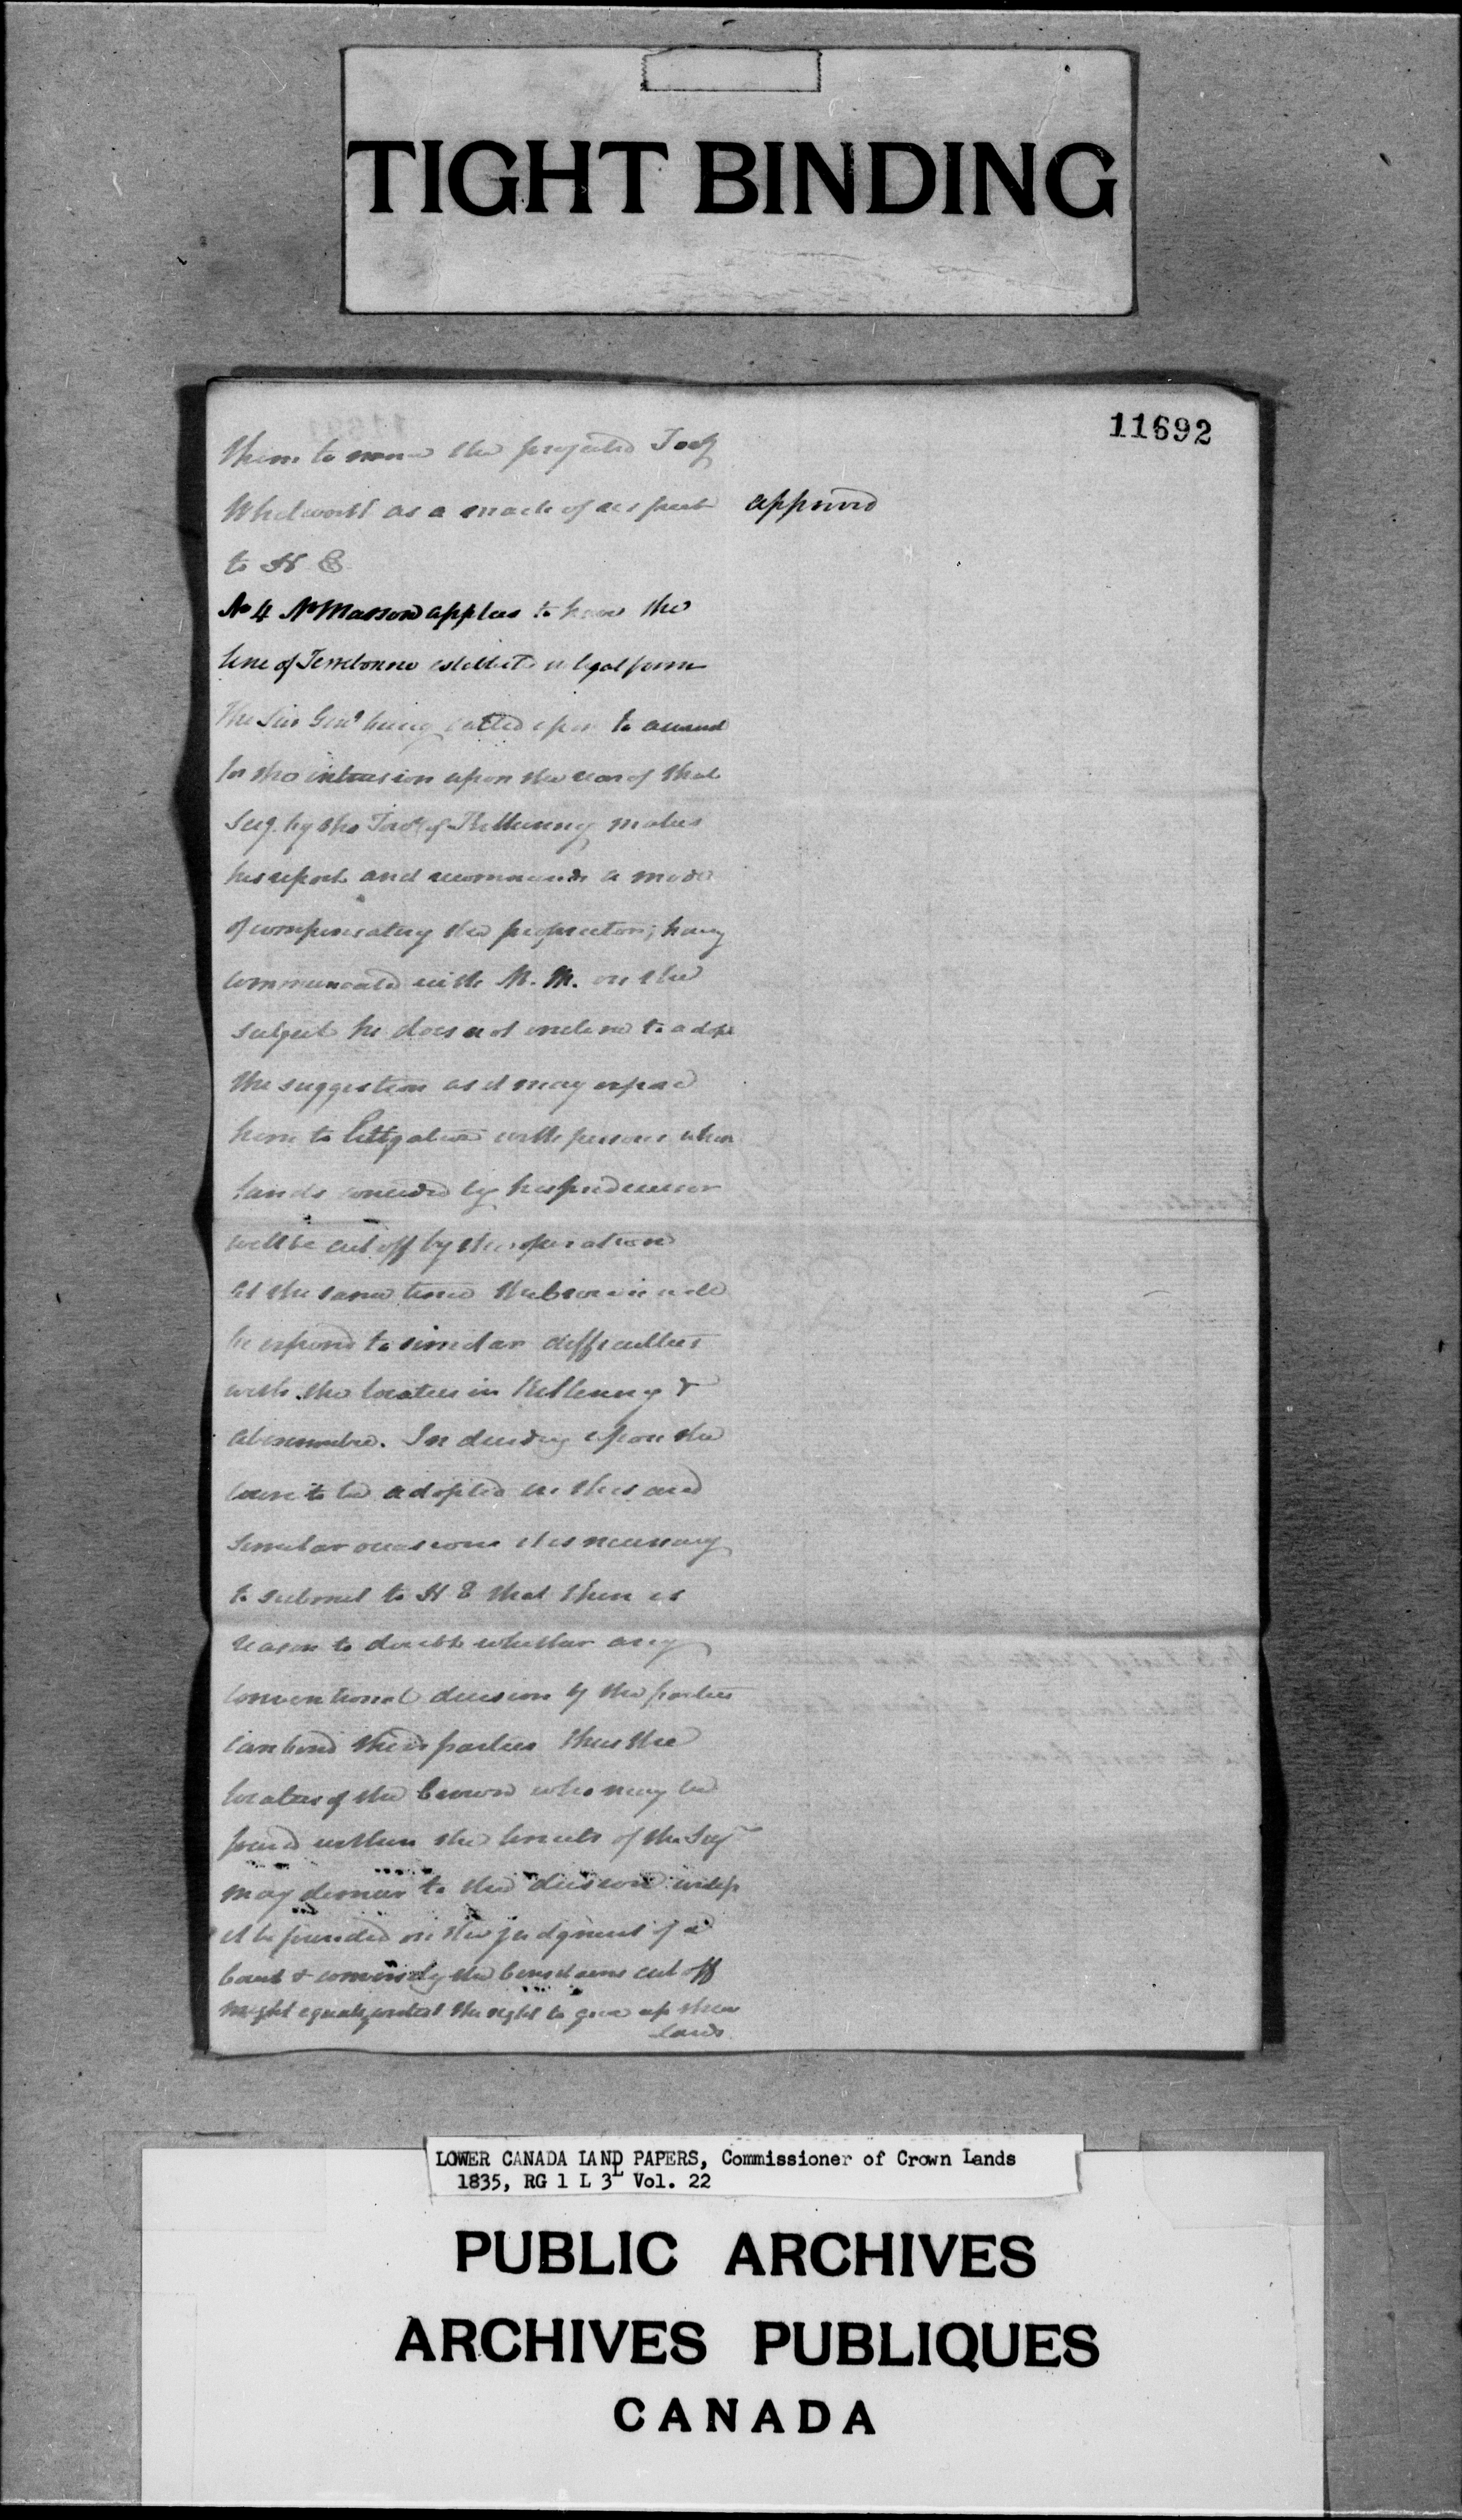 TIGHT BINDING
11692
them to name the projected Tosp
Whitworth as a mark of respect
approved
to H E
No 4 Mr Masson applies to have the
line of Terrebonne establish'd in legal form
The Sur Genl being called upon to amend
for the intrusion upon the rear of that
Seig. by the Tosp of Kilkenny makes
his report and recommends a mode
of compensating the proprietors; havg
communicated with Mr. M. on the
subject he does not incline to adopt
the suggestion as it may expose
him to litigation with persons whose
lands conceded by his predecessor
will be cut off by the operation
At the same time the Crown will
be exposed to similar difficulties
with the locatees in Kilkenny &
Abercrombie. In deciding upon the
course to be adopted in this and
similar occasions it is necessary
to submit to H E that there is
reason to doubt whether any
conventional decision by the parties
can bind third parties thus the
locatees of the Crown who may be
found within the limits of the Seigy
may demur to the decision unless
it be founded on the judgment of a
Court & conversely the Censitaires cut off
might equally contest the right to give up their
lands
LOWER CANADA LAND PAPERS, Commissioner of Crown Lands
1835, RG 1 L 3L Vol. 22
PUBLIC ARCHIVES
ARCHIVES PUBLIQUES
CANADA